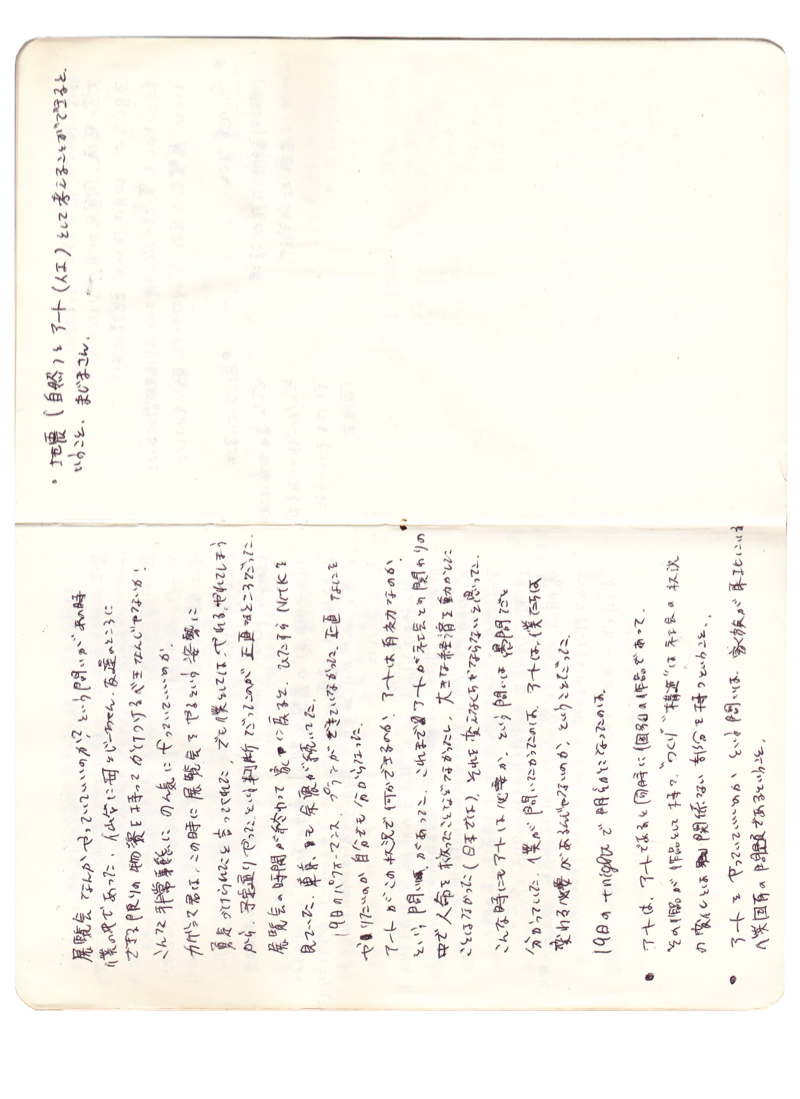 展覧会なんかやっていていいのか？という問いがあの時
僕の中であった。仙台に母とじいちゃん、友達のところに
できる限りの物資を持ってかけつけるべきなんじゃないか！
こんな非常事態にのん気にやっていていいのか。
カガミ君は、この時に展覧会をやるという姿勢に
勇気づけられたと言ってくれた。でも僕としては、やれる、やれてしまう
から、予定通りやったという判断だったのが正直なところだった。
展覧会の時間が終わって家に戻ると、ひたすらNHKを
見ていた。東京も余震が続いてた。
19日のパフォーマンス、プランができていなかった。正直なにを
やりたいのか自分でも分からなかった。
アートがこの状況で何ができるのか、アートは有効なのか、
という問いがあった。これまでアートが社会との関わりの
中で人命を扱ったことなどなかったし、大きな経済を動かした
ことはなかった（日本では）。それを変えなくちゃならないと思った。
こんな時にもアートは必要か、という問いは愚問だと
分かっていた。僕が問いたかったのは、アートは、僕たちは
変わる必要があるんじゃないのか、ということだった。
19日の+nightで明らかになったのは、
● アートは、アートであると同時に1個の作品であって、
その作品が作品として持つ、つくり“構造”は社会の状況
の変化とは関係ない部分を持つということ。
● アートをやっていていいのか という問いは、家族が東北にいる
八美固有の問題であるということ。
・地震（自然）とアート（人工）として考えることができると
いうこと、まじまさん。